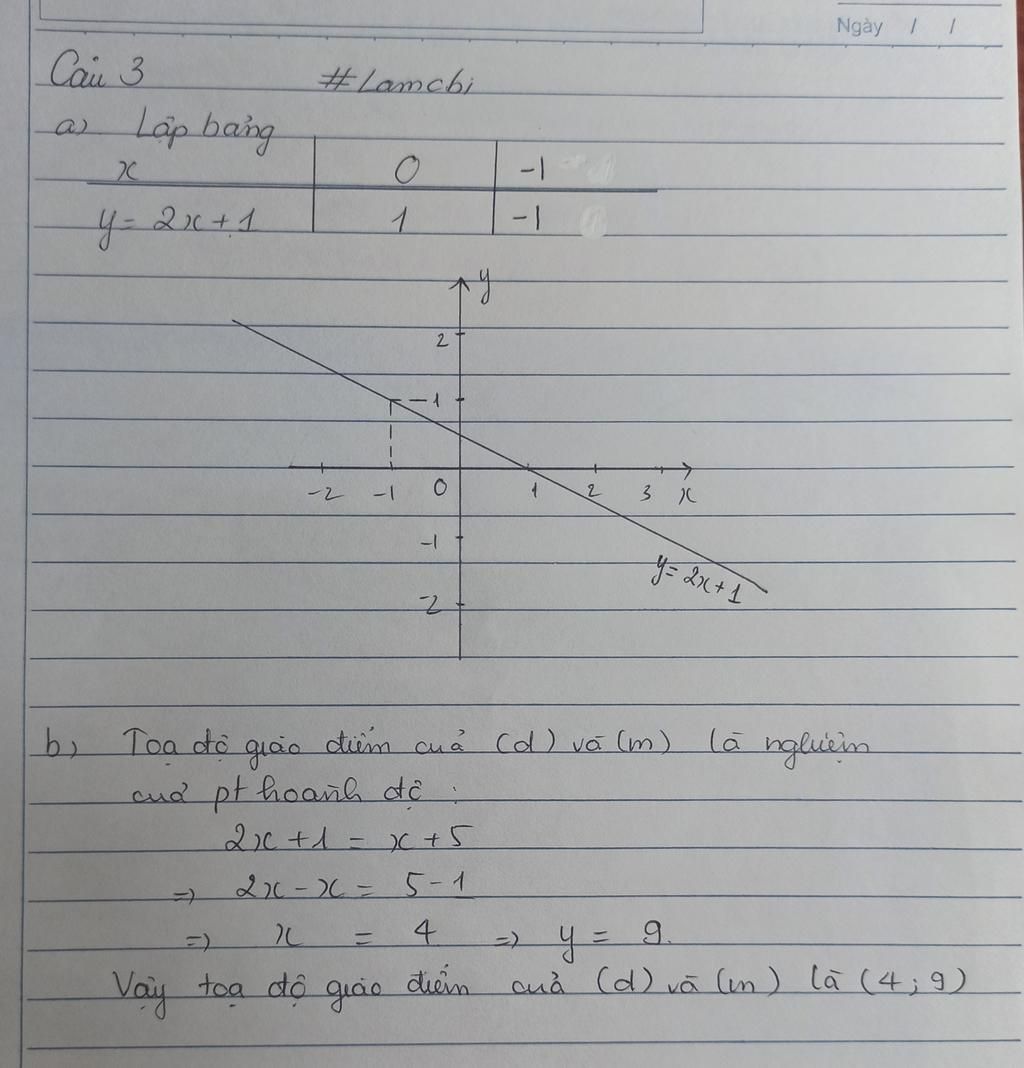 Ngày / /
Câu 3 #Lamchi
a) Lập bảng
x 0 -1
y = 2x + 1 1 -1
y
2
1
-2 -1 0 1 2 3 x
-1
y = 2x + 1
-2
b) Toạ độ giao điểm cuả (d) và (m) là nghiệm
cuả pt hoành độ :
2x + 1 = x + 5
=> 2x - x = 5 - 1
=> x = 4 => y = 9.
Vậy toạ độ giao điểm cuả (d) và (m) là (4 ; 9)